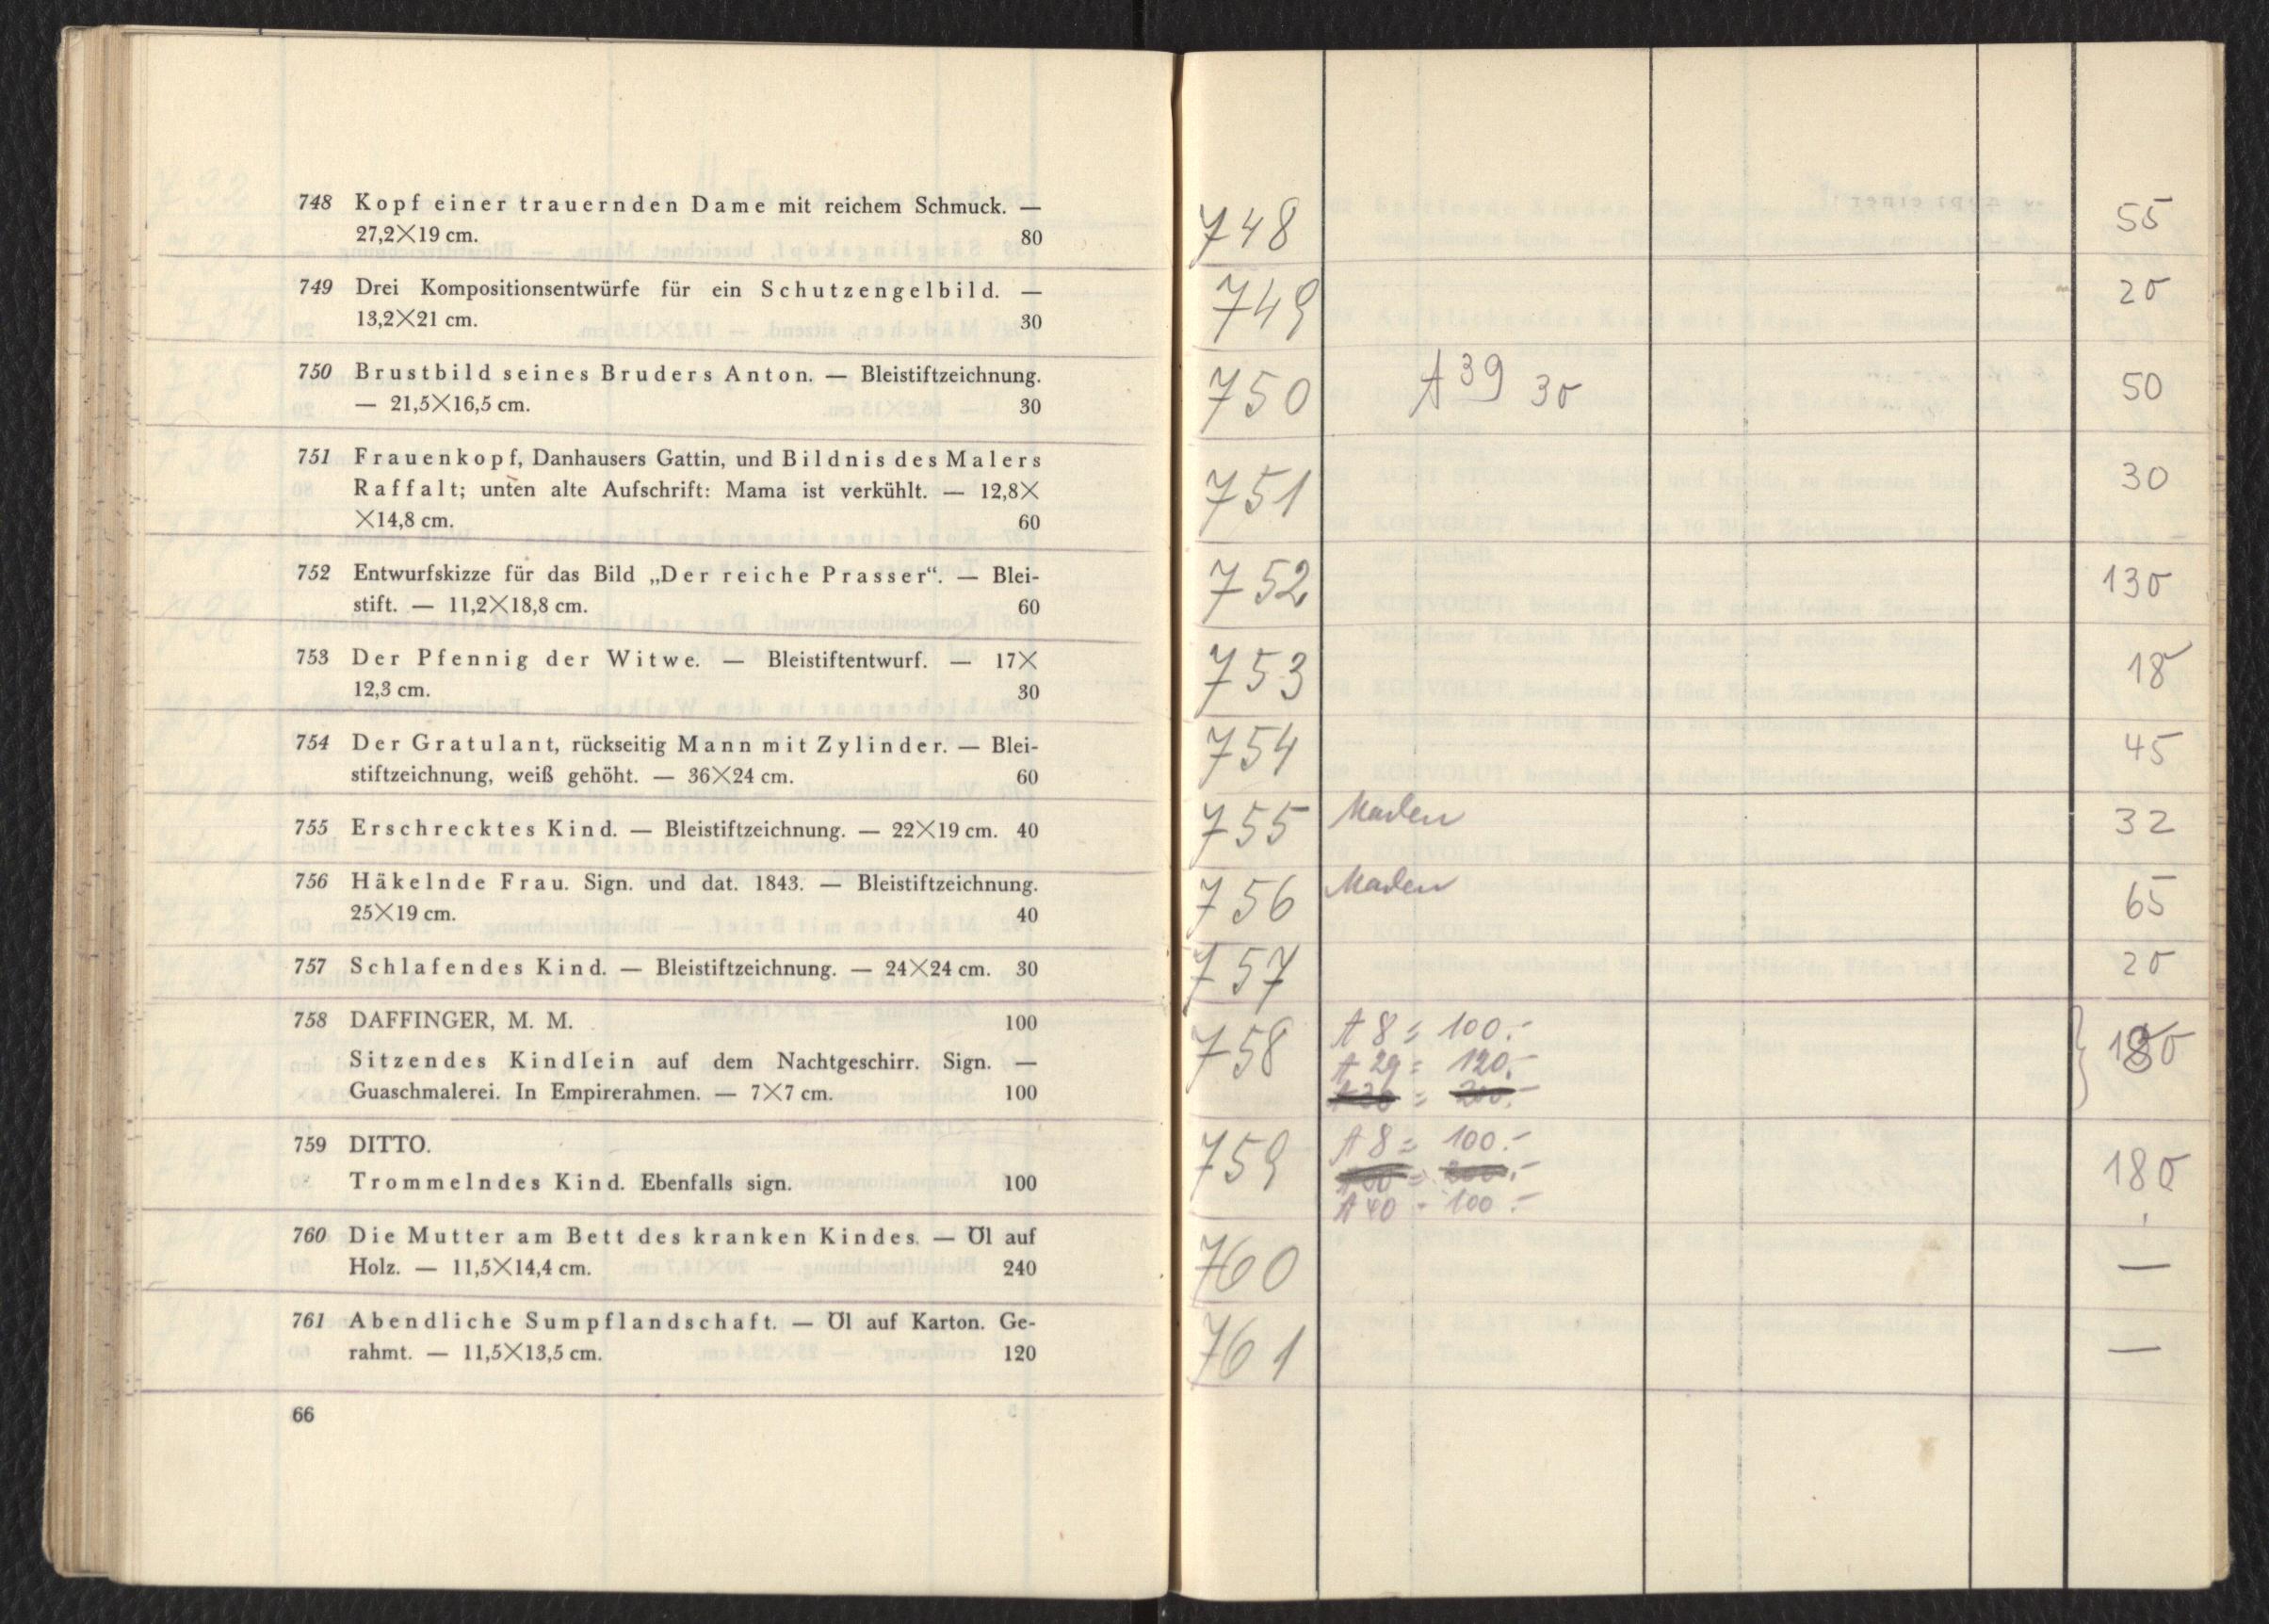 748 Kopf einer trauernden Dame mit reichem Schmuck. —
27,2×19 cm. 80
749 Drei Kompositionsentwürfe für ein Schutzengelbild. —
13,2×21 cm. 30
750 Brustbild seines Bruders Anton. — Bleistiftzeichnung.
— 21,5×16,5 cm. 30
751 Frauenkopf, Danhausers Gattin, und Bildnis des Malers
Raffalt; unten alte Aufschrift: Mama ist verkühlt. — 12,8×
×14,8 cm. 60
752 Entwurfskizze für das Bild „Der reiche Prasser“. — Blei-
stift. — 11,2×18,8 cm. 60
753 Der Pfennig der Witwe. — Bleistiftentwurf. — 17×
12,3 cm. 30
754 Der Gratulant, rückseitig Mann mit Zylinder. — Blei-
stiftzeichnung, weiß gehöht. — 36×24 cm. 60
755 Erschrecktes Kind. — Bleistiftzeichnung. — 22×19 cm. 40
756 Häkelnde Frau. Sign. und dat. 1843. — Bleistiftzeichnung.
25×19 cm. 40
757 Schlafendes Kind. — Bleistiftzeichnung. — 24×24 cm. 30
758 DAFFINGER, M. M. 100
Sitzendes Kindlein auf dem Nachtgeschirr. Sign. —
Guaschmalerei. In Empirerahmen. — 7×7 cm. 100
759 DITTO.
Trommelndes Kind. Ebenfalls sign. 100
760 Die Mutter am Bett des kranken Kindes. — Öl auf
Holz. — 11,5×14,4 cm. 240
761 Abendliche Sumpflandschaft. — Öl auf Karton. Ge-
rahmt. — 11,5×13,5 cm. 120
66
748 55
749 20
750 A 39 30 50
751 30
752 130
753 18
754 45
755 32
756 65
757 20
758 A 8 = 100.-
A 29 = 120.-
759 A 8 = 100.- 180
A 40 - 100.-
760 —
761 —